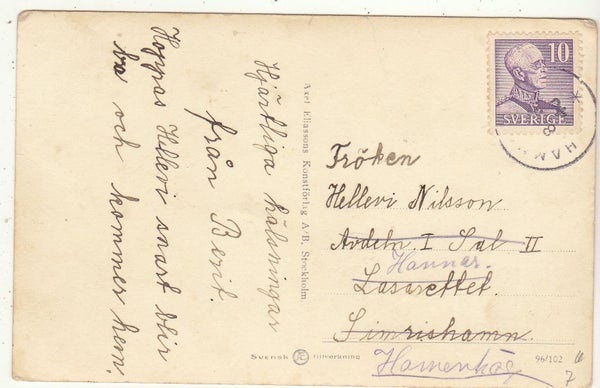 Hoppas Hellevi snart blir
bra och kommer hem.
Hjärtliga hälsningar
från Berit.
Axel Eliassons Konstförlag A/B, Stockholm.
10
SVERIGE
Fröken
Hellevi Nilsson
Avdeln. I Sal II
Hannas.
Lasarettet.
Simrishamn.
Hamenhög
Svensk tillverkning
96/102